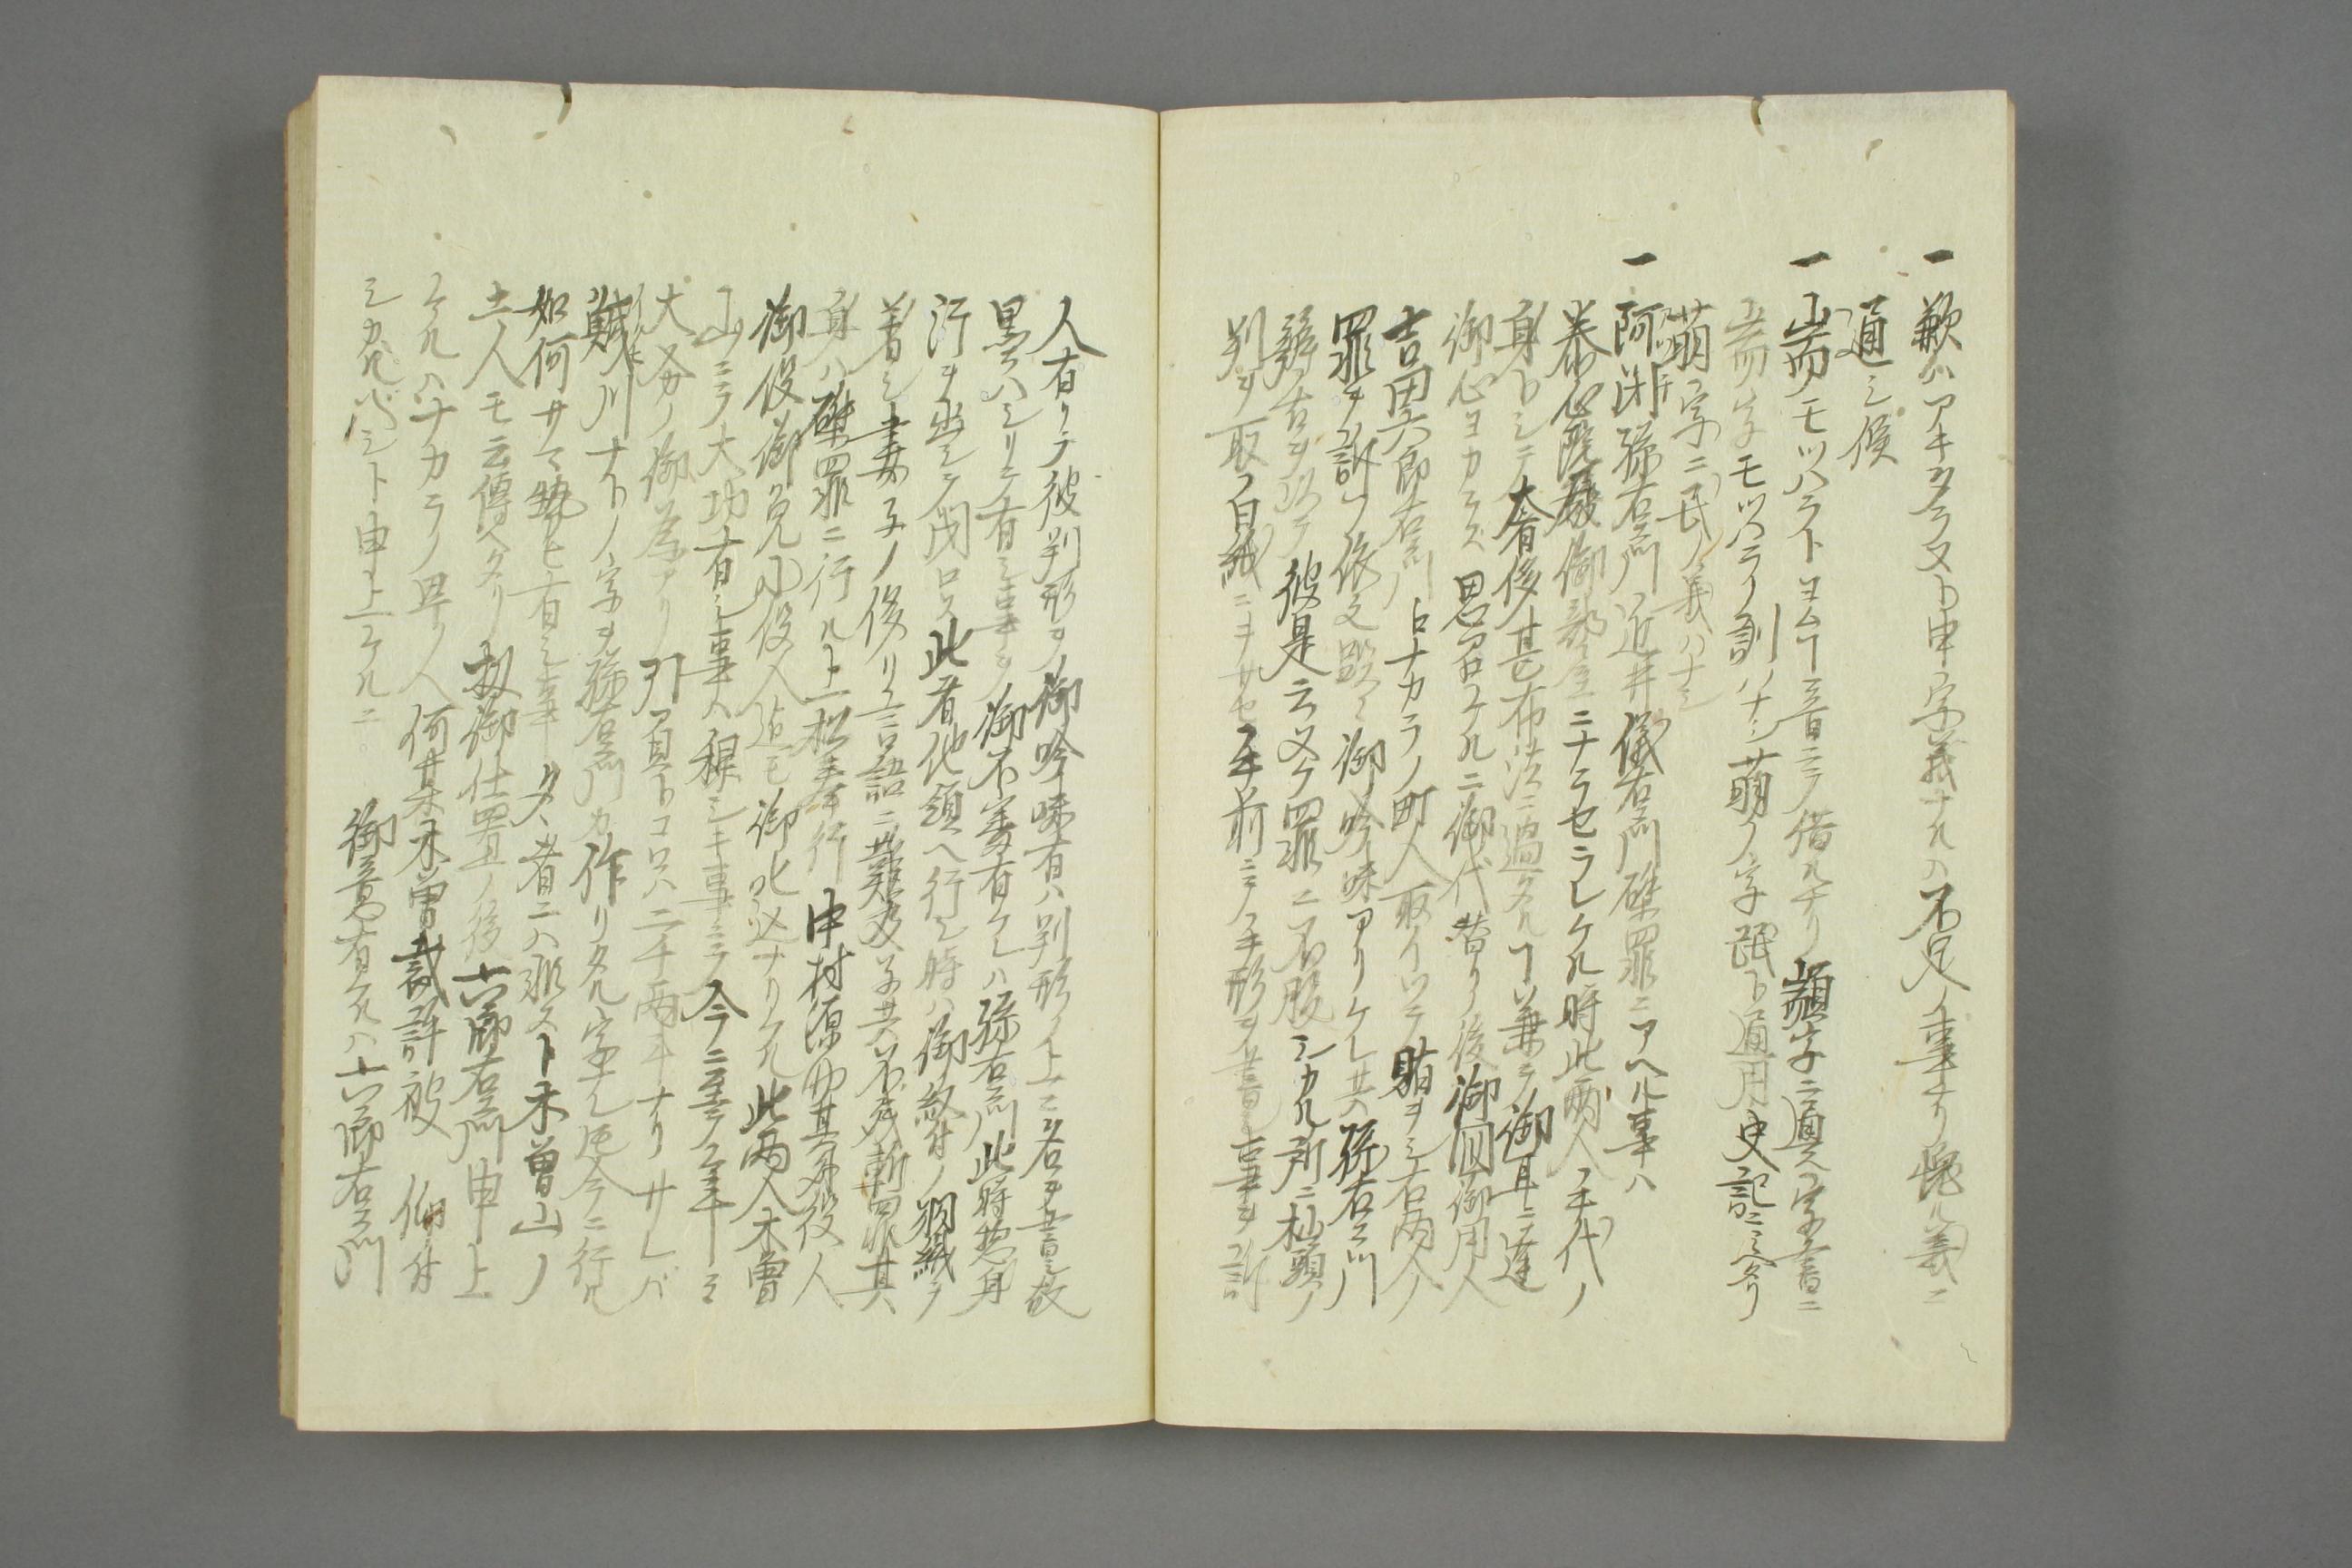 一 歉ハアキタラヌト申字義ナルハ不足ノ事ナリ愧ル義ニ
通シ候
一 耑ノモツハラトヨムヿ音ニテ借ルナリ顓字ニ通ス字書ニ
耑ノ字モツハラノ訓ハナシ萌ノ字氓ト通用史記ニミヘタリ
萌字ニ民ノ義ハナシ
一 阿閉孫右衛門近井儀右衛門磔罪ニアヘル事ハ
泰心院殿御部屋ニナラセラレケル時此両人手代ノ
身トシテ大奢侈甚市法ニ過タルヿ兼テ御耳ニ達
御心ヨカラス思召ケルニ御代替リノ後御側御用人
吉田六郎右衛門占ナカラノ町人取イツテ賄ヲシ右両人ノ
罪ヲ訴フ依之段々御吟味アリケレ共孫右衛門
辯舌ヲ以テ彼是云ヌケ罪ニ不服シカル所ニ杣頭ノ
判ヲ取フ白紙ニヲサセ手前ニテ手形ヲ書シ事ヲ訴
人有リテ彼判形ヲ御吟味有ハ判形ノ上ニ名ヲ書シ故
黒クハシリテ有シ事ヲ御不審有ケレハ孫右衛門此時惣身
汗ヲ出シテ閉口ス此者他領ヘ行シ時ハ御紋付ノ羽織ヲ
着シ妻子ノ侈リ言語ニ難及子共不残斬罪其
身ハ磔罪ニ行ル上松奉行中村源助其外役人
御役御免小役人迄モ御叱込ナリケル此両人木曽
山ニテ大功有シ事ハ穏シキ事ニテ今ニ至テ年々
大分ノ御為アリ引負トコロハ二千両余ナリサレバ
賊川ナトノ字ヲ孫右衛門カ作リタル字ナレ𪜈今ニ行ル
如何サマ勢ヒ有シ事タヽ者ニハ非スト木曽山ノ
土人モ云傳ヘタリ扨御仕置ノ後六郎右衛門申上
ケルハナカラノ早ノ人何某木曽裁許被 仰付
シカルヘシト申上ケルニ 御意有ケルハ六郎右衛門